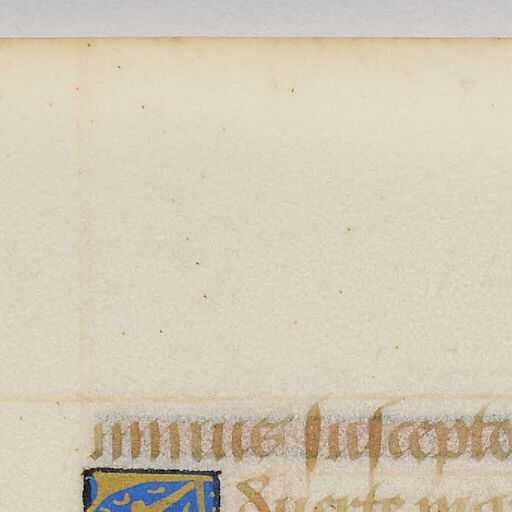 minus suscepto
uerte ma